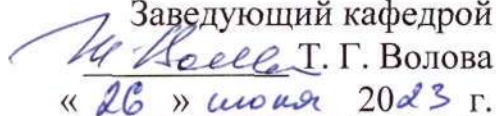 Заведующий кафедрой
Т. Г. Волова
« 26 » июня 2023 г.